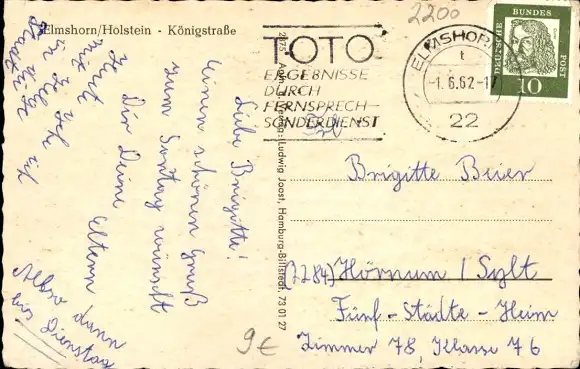 Elmshorn/Holstein - Königstraße
2200
TOTO
ERGEBNISSE
DURCH
FERNSPRECH-
SONDERDIENST
ELMSHORN
-1.6.62-17
22
DEUTSCHE
BUNDES
POST
10
Liebe Brigitte!
Einen schönen Gruß
zum Sonntag wünscht
Dir Deine Eltern
Heute
mit Helga
in der
Stadt
Also dann
bis Dienstag
Ludwig Joost, Hamburg-Billstedt, 73 01 27
Frl
Brigitte Beier
(2284) Hörnum / Sylt
Fünf-Städte-Heim
Zimmer 78, Klasse 76
9€